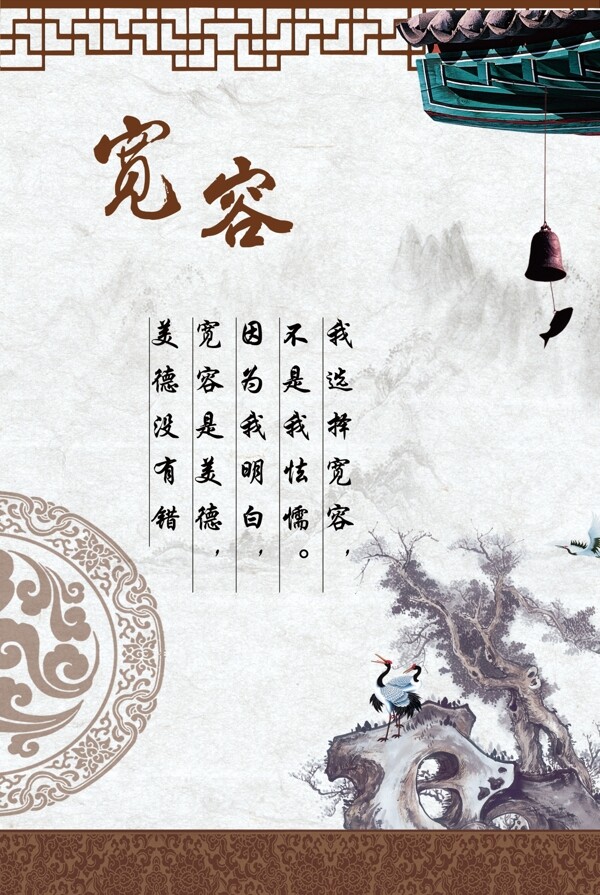 宽容
我选择宽容，
不是我怯懦。
因为我明白，
宽容是美德，
美德没有错